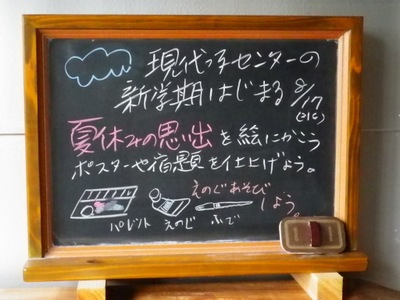 現代っ子センターの
新学期はじまる 8/17
夏休みの思い出を絵にかこう
ポスターや宿題を仕上げよう。
えのぐあそび
しよう。
パレット えのぐ ふで